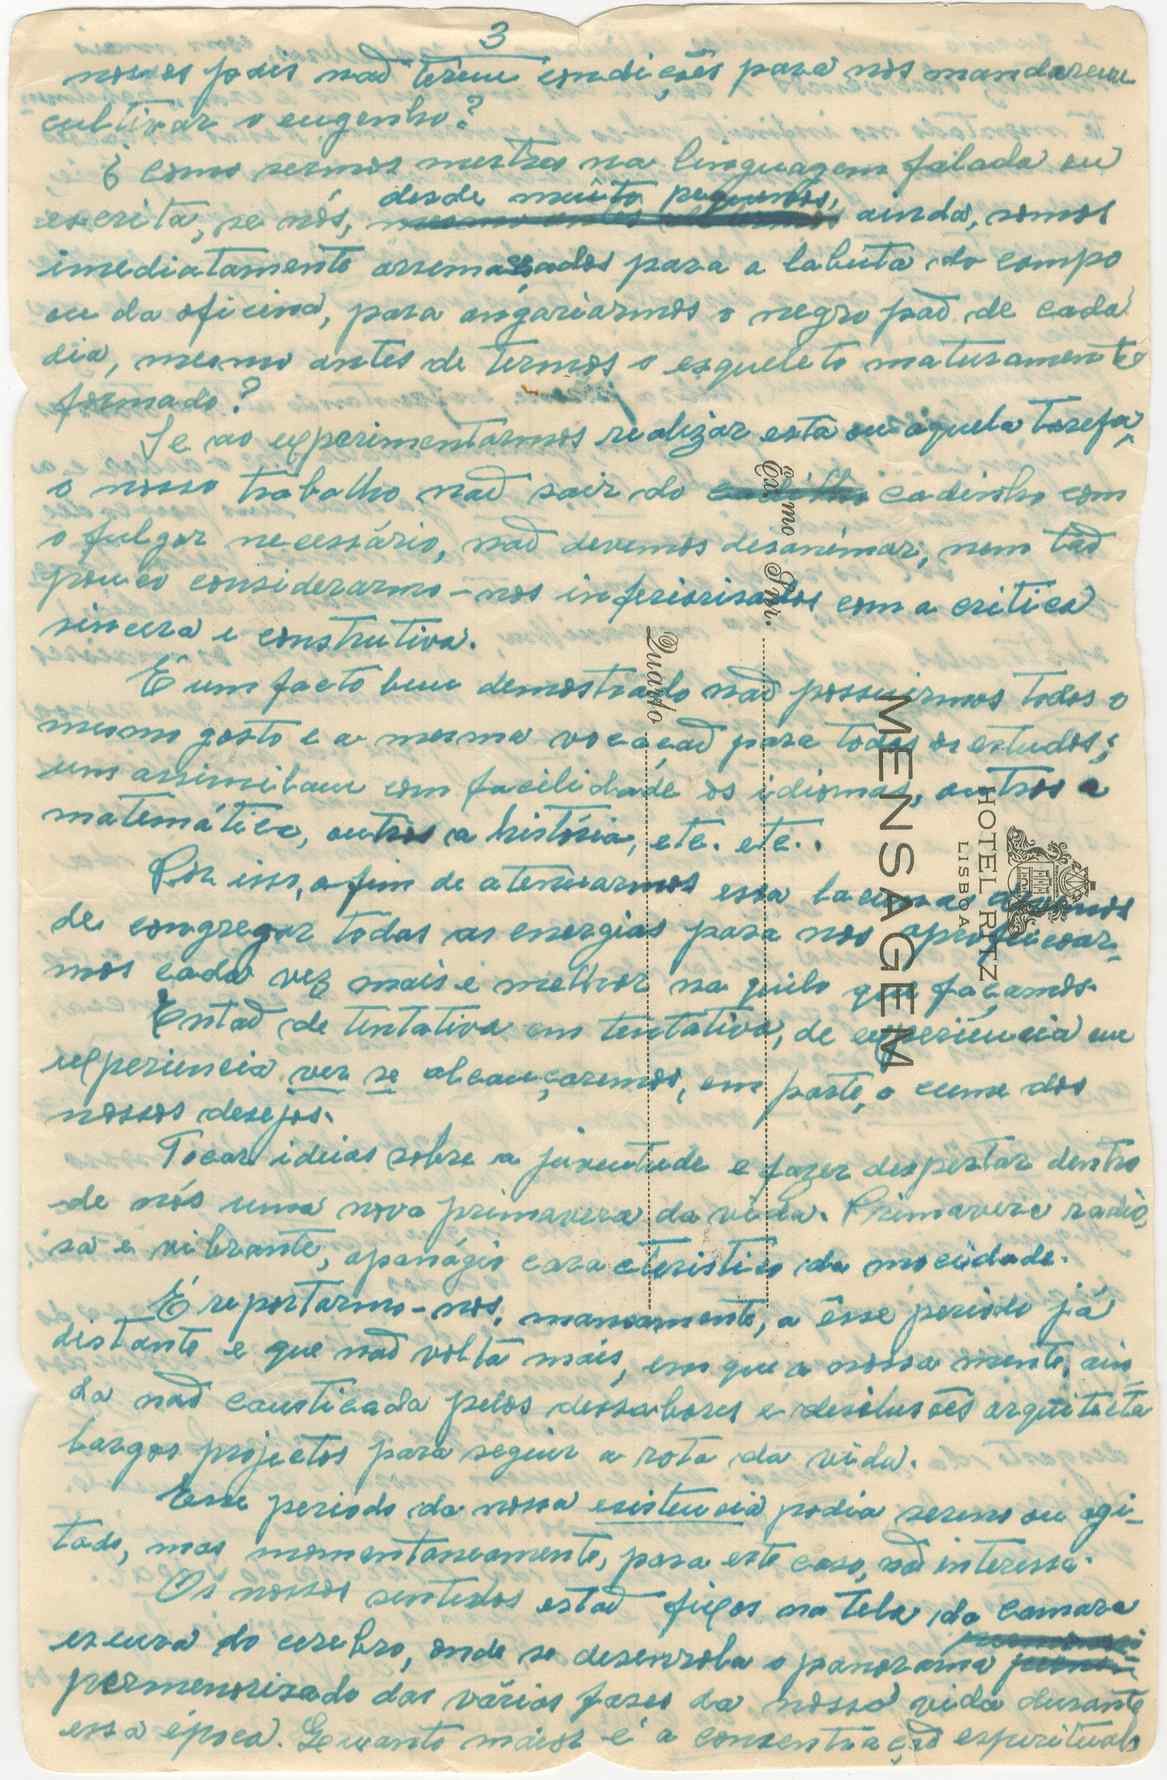 3
nossos pais não terem condições para nos mandarem
cultivar o engenho?
E como sermos mestres na linguagem falada ou
desde muito pequenos,
escrita, se nós, ainda, somos
imediatamente arremassados para a labuta do campo
ou da oficina, para angariarmos o negro pão de cada
dia, mesmo antes de termos o esqueleto maturamente
formado?
Se ao experimentarmos realizar esta ou aquela tarefa,
o nosso trabalho não sair do cadinho com
o fulgor necessário, não devemos desanimar, nem tão
pouco considerarmo-nos inferiorisados com a critica
sincera e construtiva.
É um facto bem demostrado não possuirmos todos o
mesmo gosto e a mesma vocação para todos os estudos;
um assimilam com facilidade os idiomas, outros a
matemática, outros a história, etc. etc..
Por isso, a fim de atenuarmos essa lacunas devemos
de congregar todas as energias para nos aperfeiçoar-
mos cada vez mais e melhor na quilo que façamos.
Então de tentativa em tentativa, de experiência em
experiencia ver se alcançaremos, em parte, o cume dos
nossos desejos.
Tocar ideias sobre a juventude e fazer despertar dentro
de nós uma nova primavera da vida. Primavera radio
sa e vibrante, apanágio caracteristico da mocidade.
É reportarmo-nos, mansamente, a êsse periodo já
distante e que não volta mais, em que a nossa mente, ain
da não causticada pelos dessabores e desilusões arquitecta
largos projectos para seguir a rota da vida.
Esse periodo da nossa esistencia podia sereno ou agi-
tado, mas momentaneamente, para este caso, não interessa.
Os nossos sentidos estão fixos na tela da camara
escura do cerebro, onde se desenrola o panorama
permenorisado das várias fases da nossa vida durante
essa época. Quanto maior é a consentração espiritual
Ex.mo Snr.
Quarto
MENSAGEM
HOTEL RITZ
LISBOA